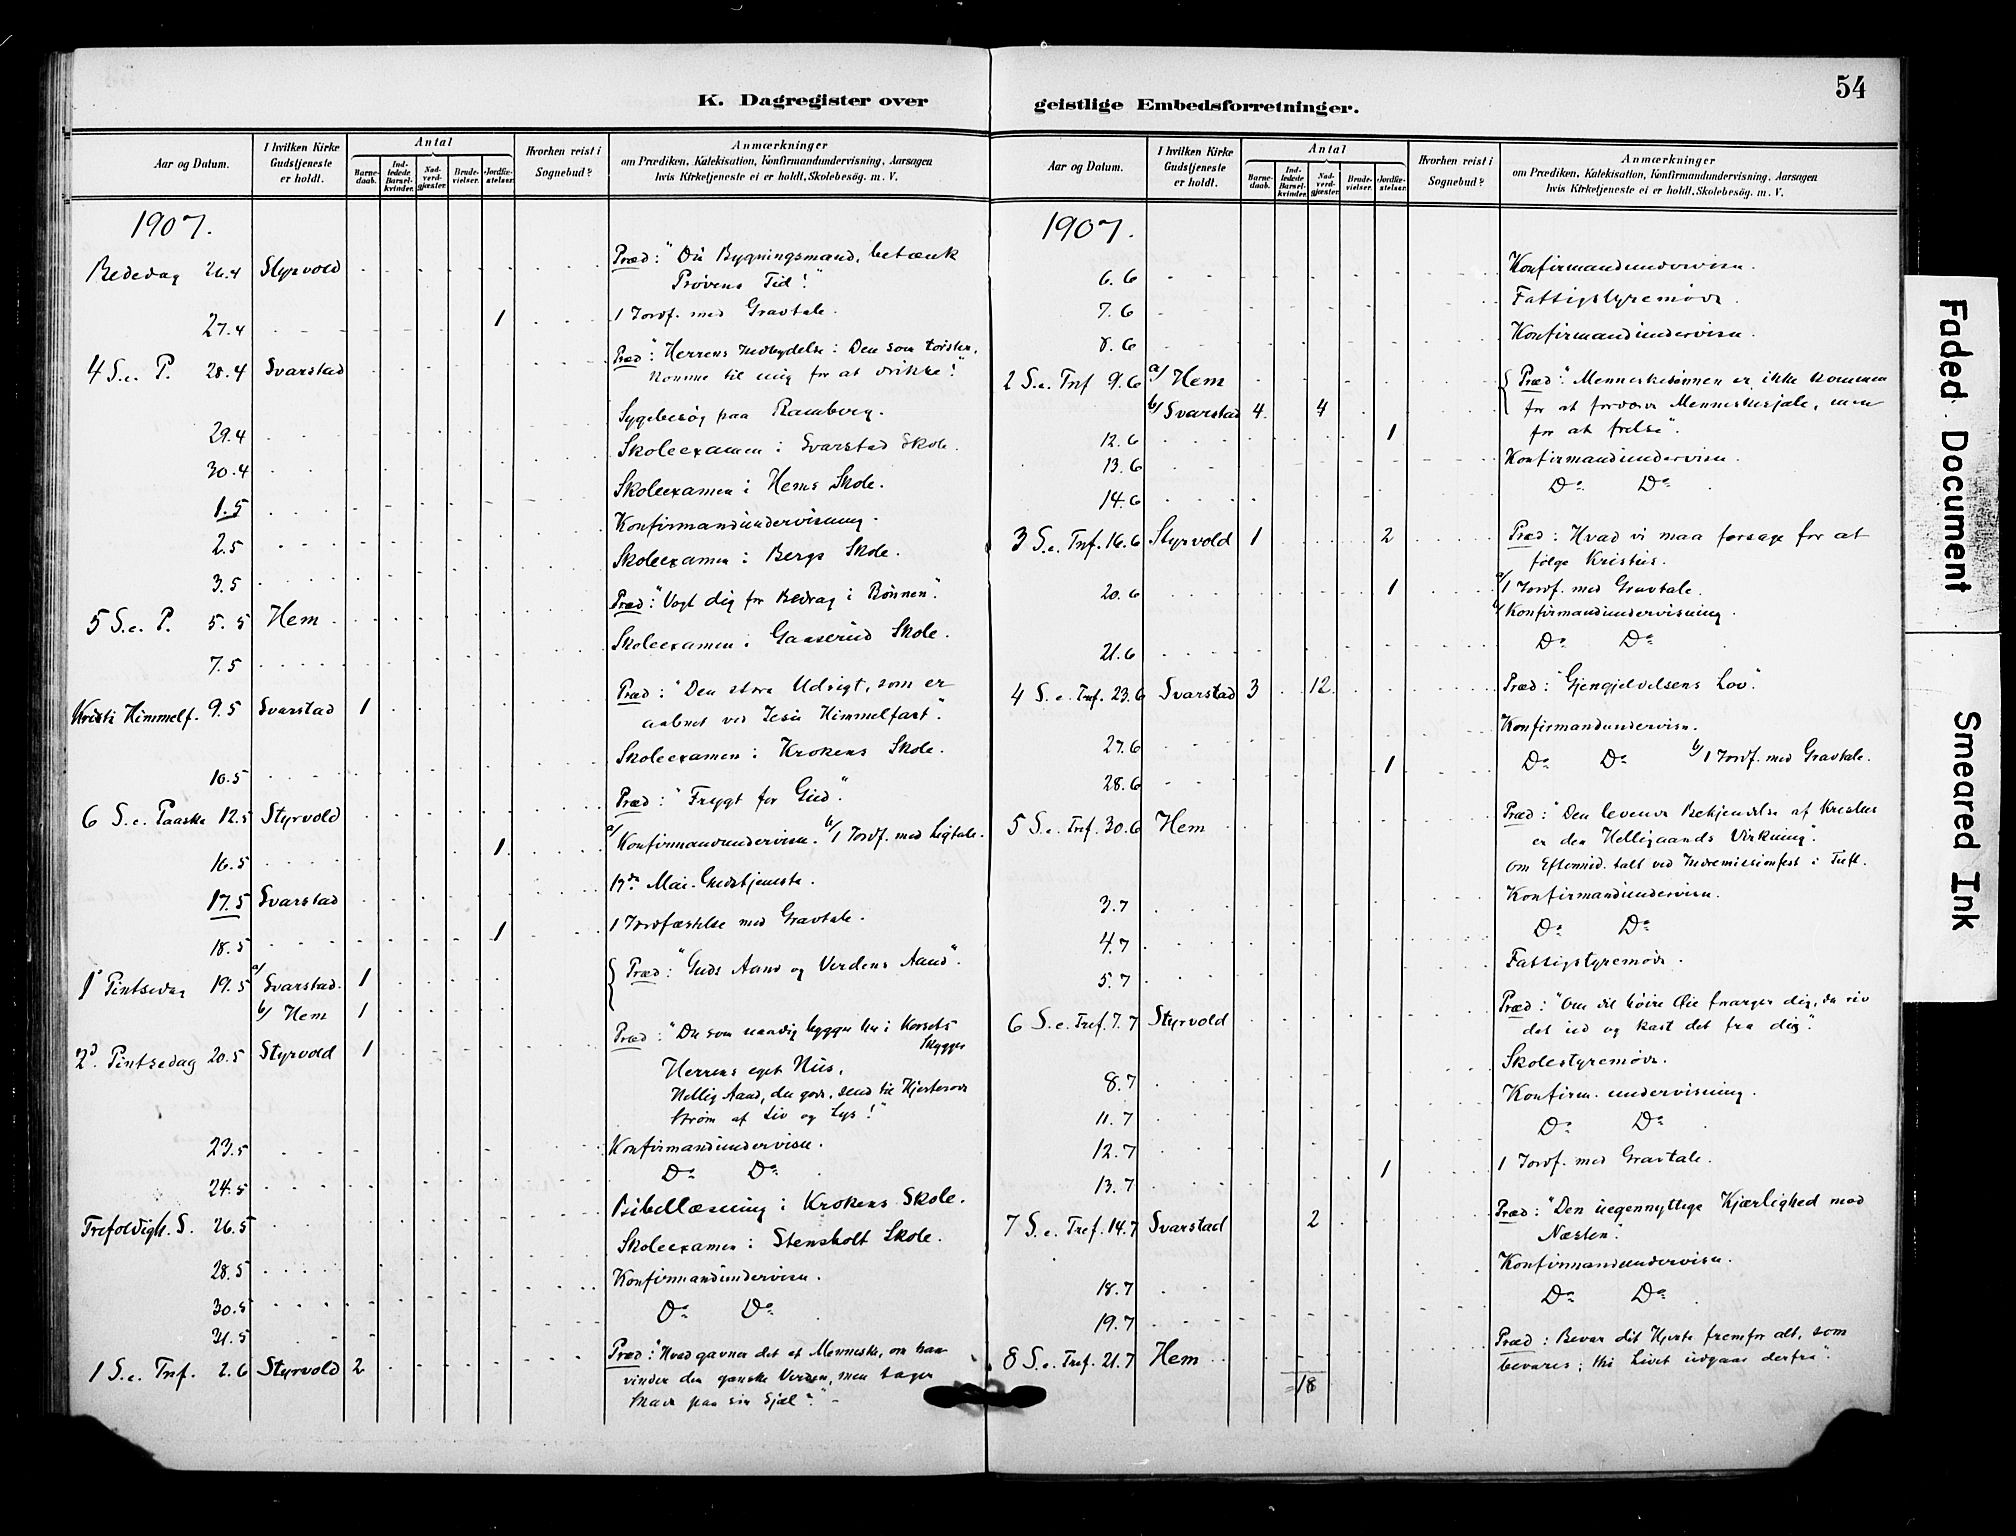 K. Dagregister over
Aar og Datum.
I hvilken Kirke Gudstjeneste er holdt.
Antal
Barnedaab.
Indledede Barselkvinder.
Nadverdgjæster.
Brudevielser.
Jordfæstelser.
Hvorhen reist i Sognebud?
Anmærkninger
om Prædiken, Katekisation, Konfirmandundervisning, Aarsagen
hvis Kirketjeneste ei er holdt, Skolebesøg. m. V.
1907.
Bededag 26.4 Styrvold Præd: "Du Bygningsmand, betænk
Prøvens Tid!"
27.4 1 1 Jordf. med Gravtale.
4 S. e. P. 28.4 Svarstad Præd: "Herrens Indbydelse: Den som tørster,
komme til mig for at drikke!"
29.4 Sygebesøg paa Ramberg.
30.4 Skoleexamen i Svarstad Skole.
1.5 Skoleexamen i Hems Skole.
2.5 Konfirmandundervisning.
3.5 Skoleexamen i Bergs Skole.
5 S. e. P. 5.5 Hem Præd: "Vogt dig for Bedrag i Bønnen".
7.5 Skoleexamen i Gaaserud Skole.
Kristi Himmelf. 9.5 Svarstad 1 Præd: "Den store Udsigt, som er
aabnet ved Jesu Himmelfart".
10.5 Skoleexamen i Krokens Skole.
6 S. e. Paaske 12.5 Styrvold Præd: "Frygt for Gud".
16.5 1 a/ Konfirmandundervisn. b/ 1 Jordf. med Ligtale.
17.5 Svarstad 17de Mai-Gudstjeneste.
18.5 1 1 Jordfæstelse med Gravtale.
1ste Pintsedag 19.5 a/ Svarstad. 1 Præd: "Guds Aand og Verdens Aand".
b/ Hem 1
2d. Pintsedag 20.5 Styrvold 1 Præd: "Du som naadig bygger her i Korsets
Skygger
Herrens eget Hus,
Hellig Aand, du gode, send til Hjerterode
Strøm af Liv og Lys!"
23.5 Konfirmandundervisn.
24.5 Do Do
Trefoldigh. S. 26.5 Bibellæsning i Krokens Skole.
28.5 Skoleexamen i Stensholt Skole.
30.5 Konfirmandundervisn.
31.5 Do Do
1 S. e. Tref. 2.6 Styrvold 2 Præd: "Hvad gavner det et Menneske, om han
vinder den ganske Verden, men tager
Skade paa sin Sjæl?"
geistlige Embedsforretninger.
54
Aar og Datum.
I hvilken Kirke Gudstjeneste er holdt.
Antal
Barnedaab.
Indledede Barselkvinder.
Nadverdgjæster.
Brudevielser.
Jordfæstelser.
Hvorhen reist i Sognebud?
Anmærkninger
om Prædiken, Katekisation, Konfirmandundervisning, Aarsagen
hvis Kirketjeneste ei er holdt, Skolebesøg. m. V.
1907.
6.6 Konfirmandundervisn.
7.6 Fattigstyremøde.
8.6 Konfirmandundervisn.
2 S. e. Tref 9.6 a/ Hem Præd: "Menneskesønnen er ikke kommen
b/ Svarstad 4 4 for at fordærve Menneskesjæle, men
for at frelse".
12.6 1
13.6 Konfirmandundervisn.
14.6 Do Do
3 S. e. Tref. 16.6 Styrvold 1 2 Præd: Hvad vi maa forsage for at
følge Kristus.
20.6 1 a/ 1 Jordf. med Gravtale.
b/ Konfirmandundervisning.
21.6 Do Do
4 S. e. Tref. 23.6 Svarstad 3 12 Præd: "Gjengjældelsens Lov".
27.6 Konfirmandundervisn.
28.6 1 Do Do b/ 1 Jordf. med Gravtale.
5 S. e. Tref. 30.6 Hem Præd: "Den levende Bekjendelse af Kristus
er den Helligaands Virkning".
Om Eftermid. talt ved Indremissionfest i
3.7 Konfirmandundervisn.
4.7 Do Do
5.7 Fattigstyremøde.
6 S. e. Tref. 7.7 Styrvold Præd: "Om dit høire Øie forarger dig, da riv
det ud og kast det fra dig".
8.7 Skolestyremøde.
11.7 Konfirm. undervisning.
12.7 Do Do
13.7 1 1 Jordf. med Gravtale.
7 S. e. Tref. 14.7 Svarstad 2 Præd: "Den uegennyttige Kjærlighed mod
Næsten".
18.7 Konfirmandundervisn.
19.7 Do Do
8 S. e. Tref. 21.7 Hem Præd: Bevar dit Hjerte fremfor alt, som
bevares; thi Livet udgaar derfra".
=18
Faded Document
Smeared Ink